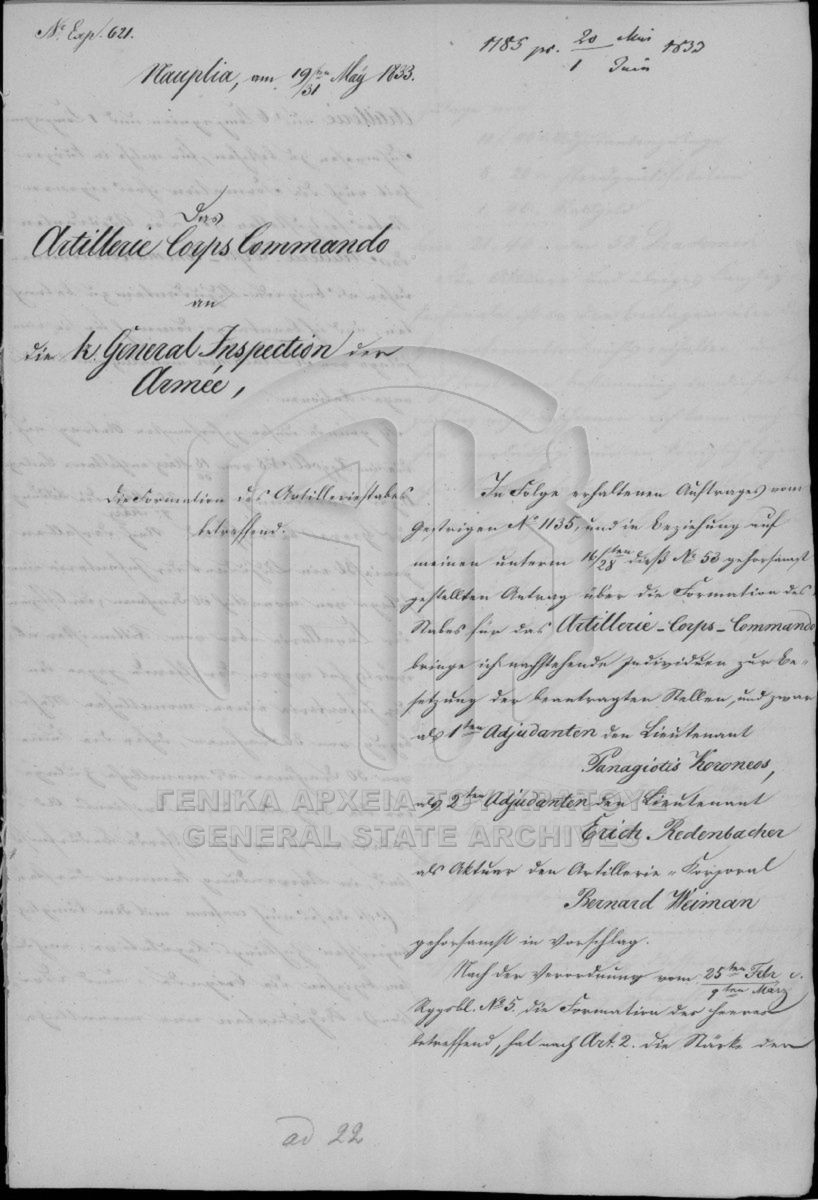 No. Exp. 621.
1185 pr. 20 Mai / 1 Juni 1833
Nauplia, am 19ten/31 Maÿ 1833.
Das
Artillerie Corps Commando
an
die k. General Inspection der
Armée,
Die Formation des Artilleriestabes
betreffend.
In Folge erhaltenen Auftrages vom
Gestrigen No. 1135, und in Beziehung auf
meinen unterm 16/28ten dieß No. 53 gehorsamst
gestellten Antrag über die Formation des
Stabes für das Artillerie-Corps-Commando
bringe ich nachstehende Individuen zur Be-
setzung der beantragten Stellen, und zwar
als 1ten Adjudanten den Lieutenant
Panagiotis Koroneos,
als 2ten Adjudanten den Lieutenant
Erich Redenbacher
als Aktuar den Artillerie-Korporal
Bernard Weiman
gehorsamst in Vorschlag.
Nach der Verordnung vom 25ten Febr / 9ten März
Rggsbl. No. 5. die Formation des Heeres
betreffend, hat nach Art. 2. die Stärke der
ad 22
ΓΕΝΙΚΑ ΑΡΧΕΙΑ ΤΟΥ ΚΡΑΤΟΥΣ
GENERAL STATE ARCHIVES